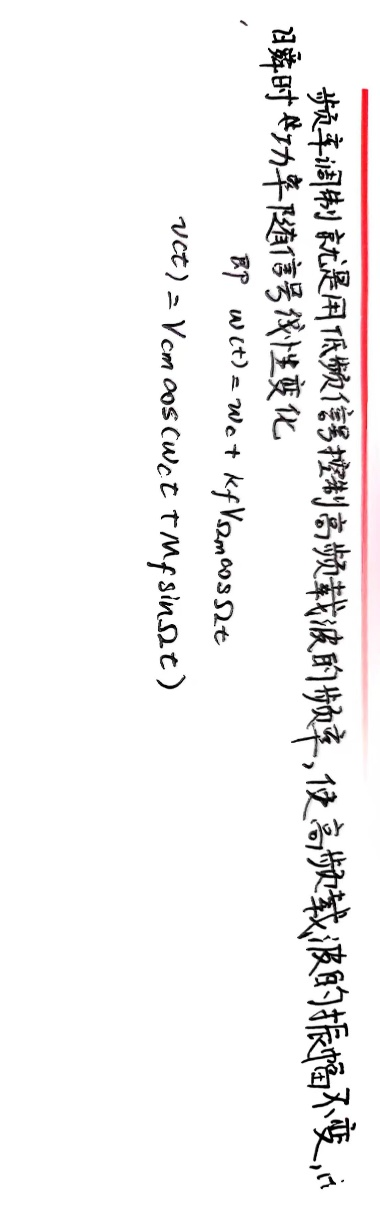 频率调制就是用低频信号控制高频载波的频率,使高频载波的振幅不变,
瞬时功率随信号线性变化
即 w(t)=wc+kfVΩmcosΩt
v(t)=Vcmcos(wct+MfsinΩt)